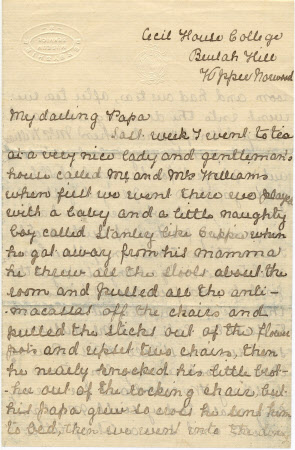 Cecil House College
Beulah Hill
Upper Norwood
My darling Papa
Last week I went to tea
at a very nice lady and gentleman's
house called Mr and Mrs Williams
when first we went there we played
with a baby and a little naughty
boy called Stanley when
he got away from his mamma
he threw all the stools about the
room and pulled all the anti-
macassars off the chairs and
pulled the sticks out of the flower
pots and upset two chairs, then
he nearly knocked his little brot-
her out of the rocking chair, but
his papa grew so cross he sent him
to bed, then we went into the